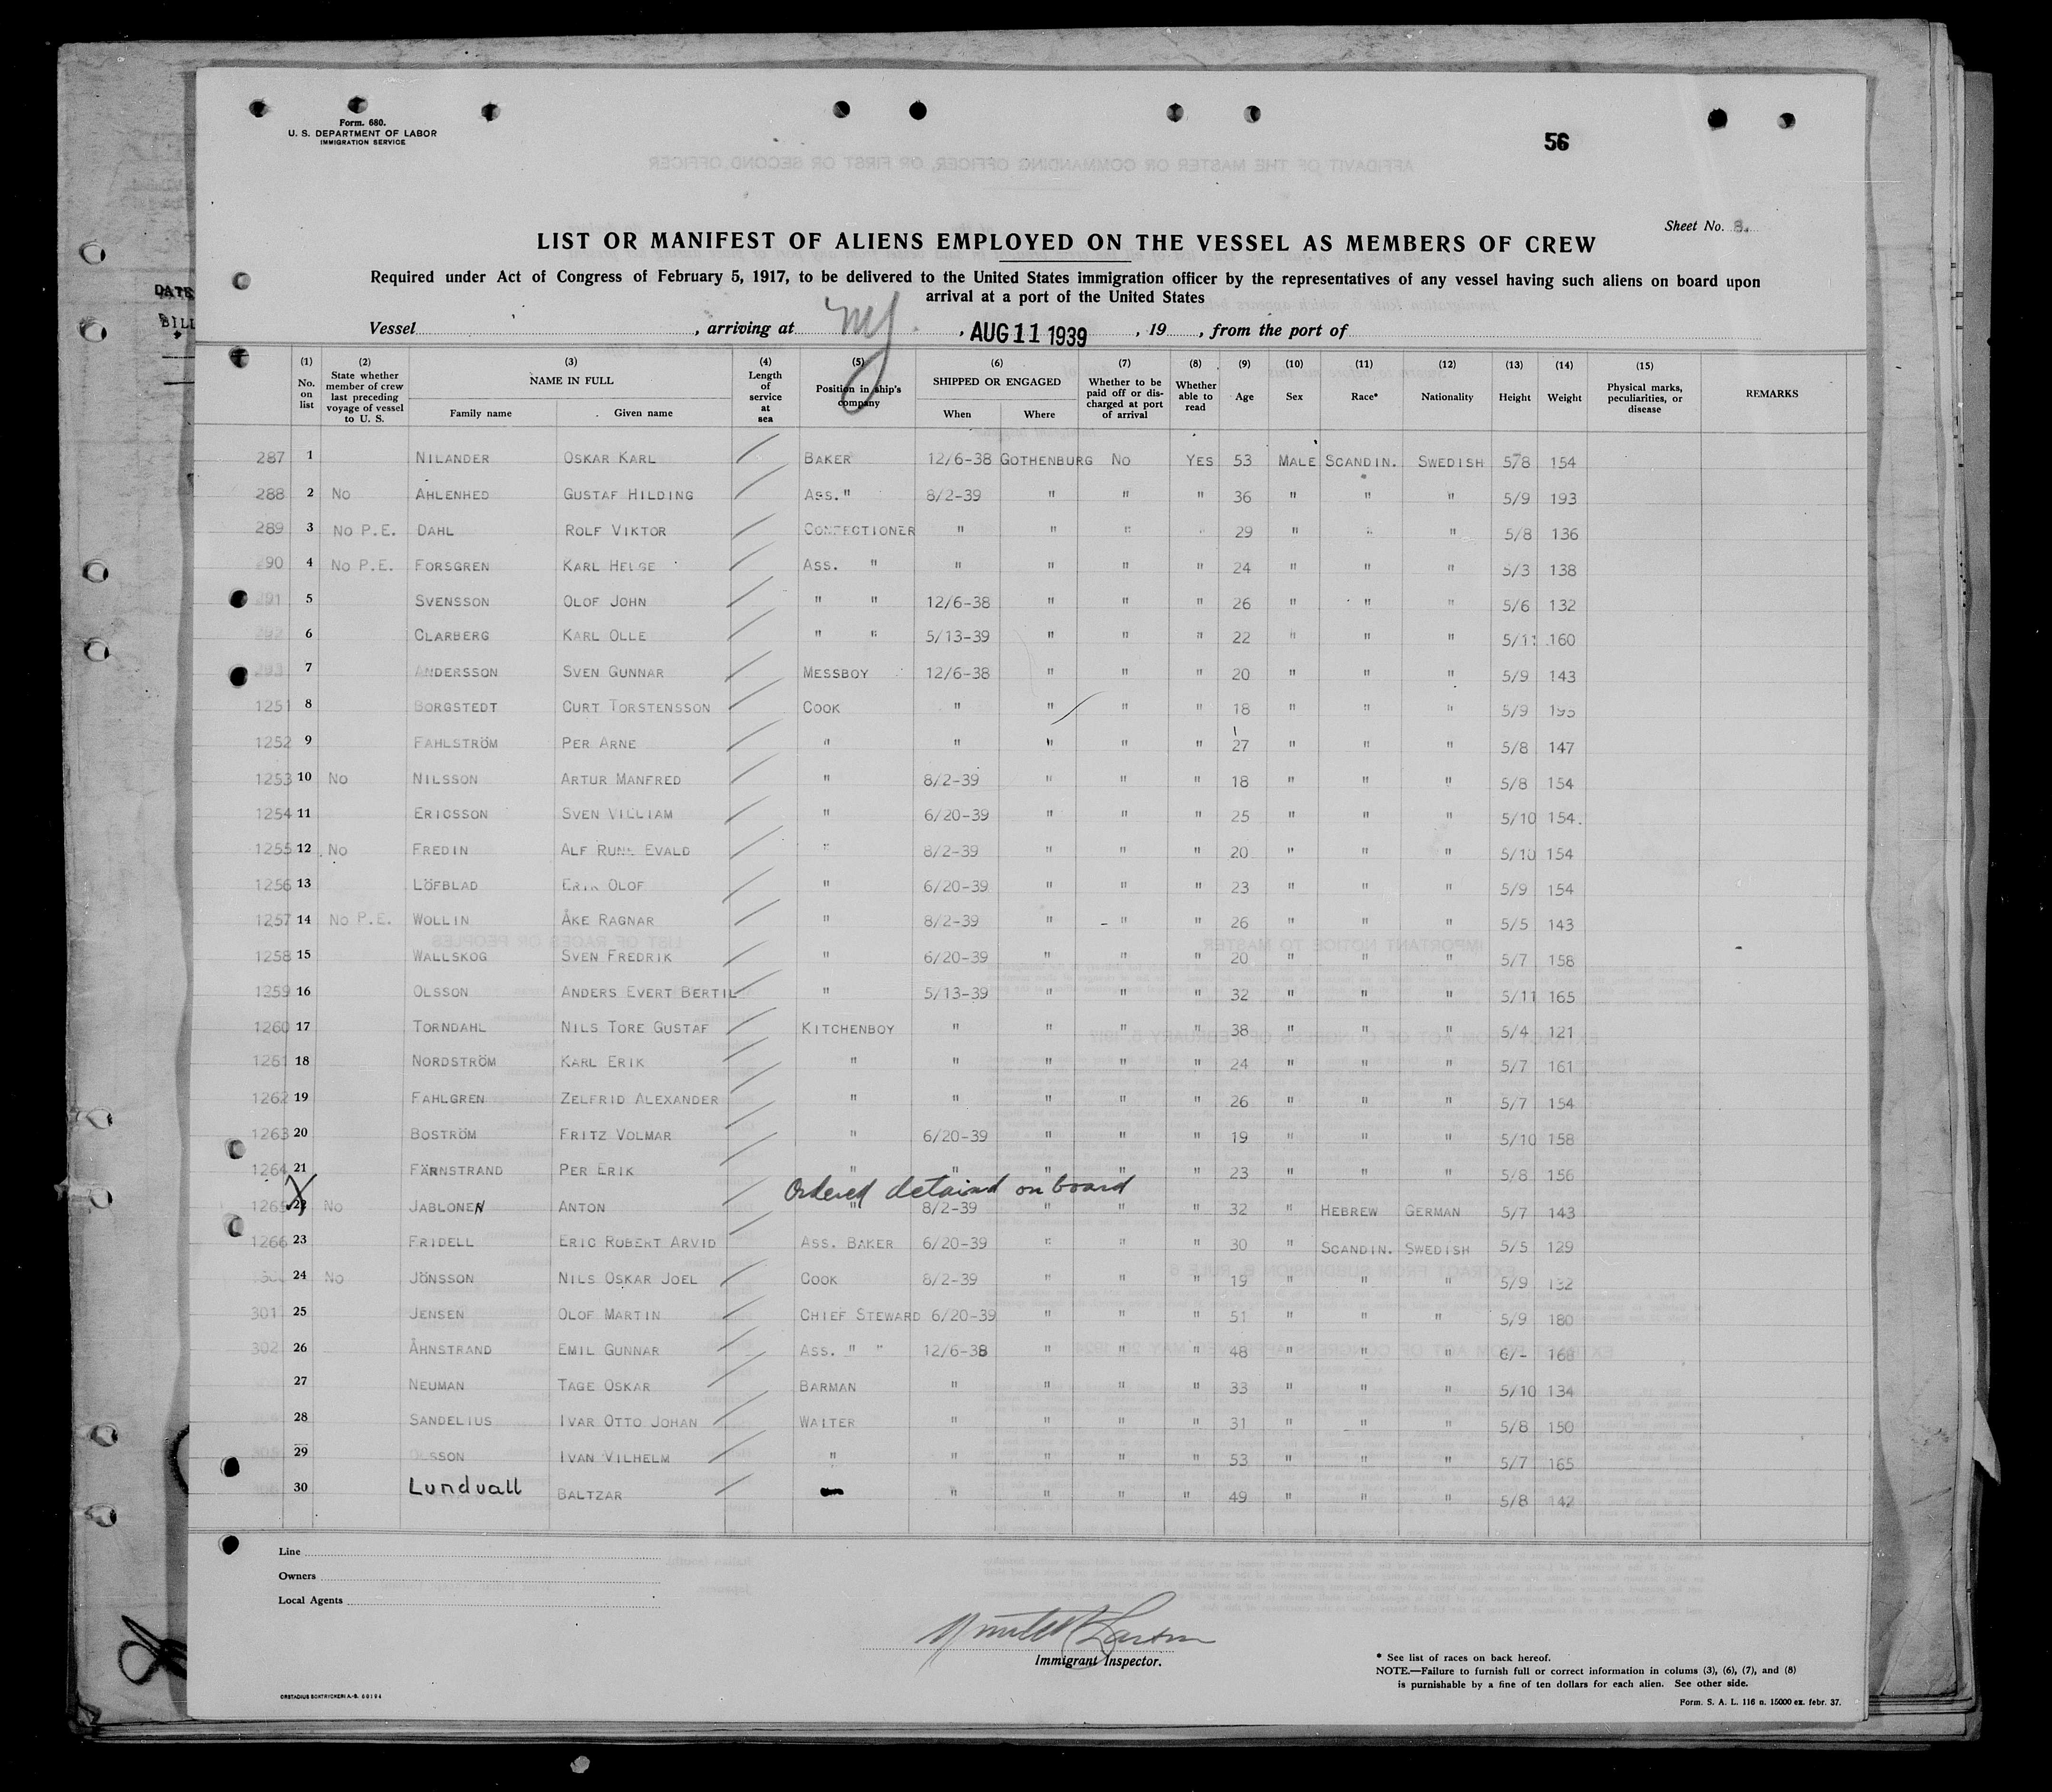 Form. 680.
U. S. DEPARTMENT OF LABOR
IMMIGRATION SERVICE
56
Sheet No. 8.
LIST OR MANIFEST OF ALIENS EMPLOYED ON THE VESSEL AS MEMBERS OF CREW
Required under Act of Congress of February 5, 1917, to be delivered to the United States immigration officer by the representatives of any vessel having such aliens on board upon
arrival at a port of the United States
DATE
BILL
Vessel , arriving at NY. , AUG 11 1939 , 19 , from the port of
(1) No. on list (2) State whether member of crew last preceding voyage of vessel to U. S. (3) NAME IN FULL Family name Given name (4) Length of service at sea (5) Position in ship's company (6) SHIPPED OR ENGAGED When Where (7) Whether to be paid off or discharged at port of arrival (8) Whether able to read (9) Age (10) Sex (11) Race* (12) Nationality (13) Height (14) Weight (15) Physical marks, peculiarities, or disease REMARKS
287 1 NILANDER OSKAR KARL BAKER 12/6-38 GOTHENBURG NO YES 53 MALE SCANDIN. SWEDISH 578 154
288 2 NO AHLENHED GUSTAF HILDING ASS. " 8/2-39 " " " 36 " " " 5/9 193
289 3 NO P.E. DAHL ROLF VIKTOR CONFECTIONER " " " " 29 " " " 5/8 136
290 4 NO P.E. FORSGREN KARL HELGE ASS. " " " " " 24 " " " 5/3 138
291 5 SVENSSON OLOF JOHN " " 12/6-38 " " " 26 " " " 5/6 132
292 6 CLARBERG KARL OLLE " " 5/13-39 " " " 22 " " " 5/11 160
293 7 ANDERSSON SVEN GUNNAR MESSBOY 12/6-38 " " " 20 " " " 5/9 143
1251 8 BORGSTEDT CURT TORSTENSSON COOK " " " " 18 " " " 5/9 195
1252 9 FAHLSTRÖM PER ARNE " " " " " 27 " " " 5/8 147
1253 10 NO NILSSON ARTUR MANFRED " 8/2-39 " " " 18 " " " 5/8 154
1254 11 ERICSSON SVEN VILLIAM " 6/20-39 " " " 25 " " " 5/10 154.
1255 12 NO FREDIN ALF RUNE EVALD " 8/2-39 " " " 20 " " " 5/10 154
1256 13 LÖFBLAD ERIK OLOF " 6/20-39 " " " 23 " " " 5/9 154
1257 14 NO P.E. WOLLIN ÅKE RAGNAR " 8/2-39 " " " 26 " " " 5/5 143
1258 15 WALLSKOG SVEN FREDRIK " 6/20-39 " " " 20 " " " 5/7 158
1259 16 OLSSON ANDERS EVERT BERTIL " 5/13-39 " " " 32 " " " 5/11 165
1260 17 TORNDAHL NILS TORE GUSTAF KITCHENBOY " " " " 38 " " " 5/4 121
1261 18 NORDSTRÖM KARL ERIK " " " " " 24 " " " 5/7 161
1262 19 FAHLGREN ZELFRID ALEXANDER " " " " " 26 " " " 5/7 154
1263 20 BOSTRÖM FRITZ VOLMAR " 6/20-39 " " " 19 " " " 5/10 158
1264 21 FÄRNSTRAND PER ERIK " " " " " 23 " " " 5/8 156
Ordered detained on board
1265 22 NO JABLONEN ANTON " 8/2-39 " " " 32 " HEBREW GERMAN 5/7 143
1266 23 FRIDELL ERIC ROBERT ARVID ASS. BAKER 6/20-39 " " " 30 " SCANDIN. SWEDISH 5/5 129
24 NO JÖNSSON NILS OSKAR JOEL COOK 8/2-39 " " " 19 " " " 5/9 132
301 25 JENSEN OLOF MARTIN CHIEF STEWARD 6/20-39 " " " 51 " " " 5/9 180
302 26 ÅHNSTRAND EMIL GUNNAR ASS. " " 12/6-38 " " " 48 " " " 6/- 168
27 NEUMAN TAGE OSKAR BARMAN " " " " 33 " " " 5/10 134
28 SANDELIUS IVAR OTTO JOHAN WAITER " " " " 31 " " " 5/8 150
305 29 OLSSON IVAN VILHELM " " " " " 53 " " " 5/7 165
30 Lundvall BALTZAR " " " " 49 " " " 5/8 142
Line
Owners
Local Agents
Immigrant Inspector.
* See list of races on back hereof.
NOTE.—Failure to furnish full or correct information in colums (3), (6), (7), and (8)
is purnishable by a fine of ten dollars for each alien. See other side.
ORSTADIUS BOKTRYCKERI A.-B. 60194
Form. S. A. L. 116 n. 15000 ex. febr. 37.